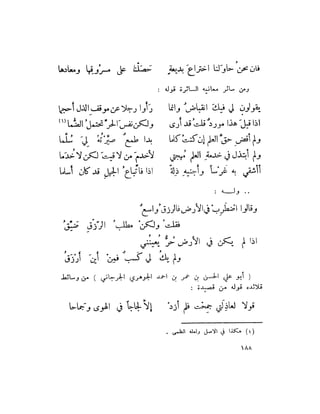 فان نحن حاولنا اختراع بديعة حصلنا على مسروقها ومعادها
ومن سائر معانيه السائرة قوله :
يقولون لي فيك انقباض وانما رأوا رجلا عن موقف الذل أحجما
اذا قيل هذا مورد قلت قد أرى ولكن نفس الحر تحتمل الظما (١)
ولم أقض حق العلم إن كنت كلما بدا طمع صيرته لي سلما
ولم أبتذل في خدمة العلم مهجتي لأخدم من لاقيت لكن لأخدما
أأشقى به غرسا وأجنيه ذلة اذا فاتباع الجهل قد كان أسلما
.. وله :
وقالوا اضطرب في الأرض فالرزق واسع
فقلت ولكن مطلب الرزق ضيق
اذا لم يكن في الأرض حر يعينني
ولم يك لي كسب فمن أين أرزق
( أبو علي الحسن بن عمر بن احمد الجوهري الجرجاني ) من وسائط
قلائده قوله من قصيدة :
قولا لعاذلتي جمحت فلم أزد إلا لجاجا في الهوى وجماحا
(٤) هكذا في الاصل ولعله الظمى .
١٨٨